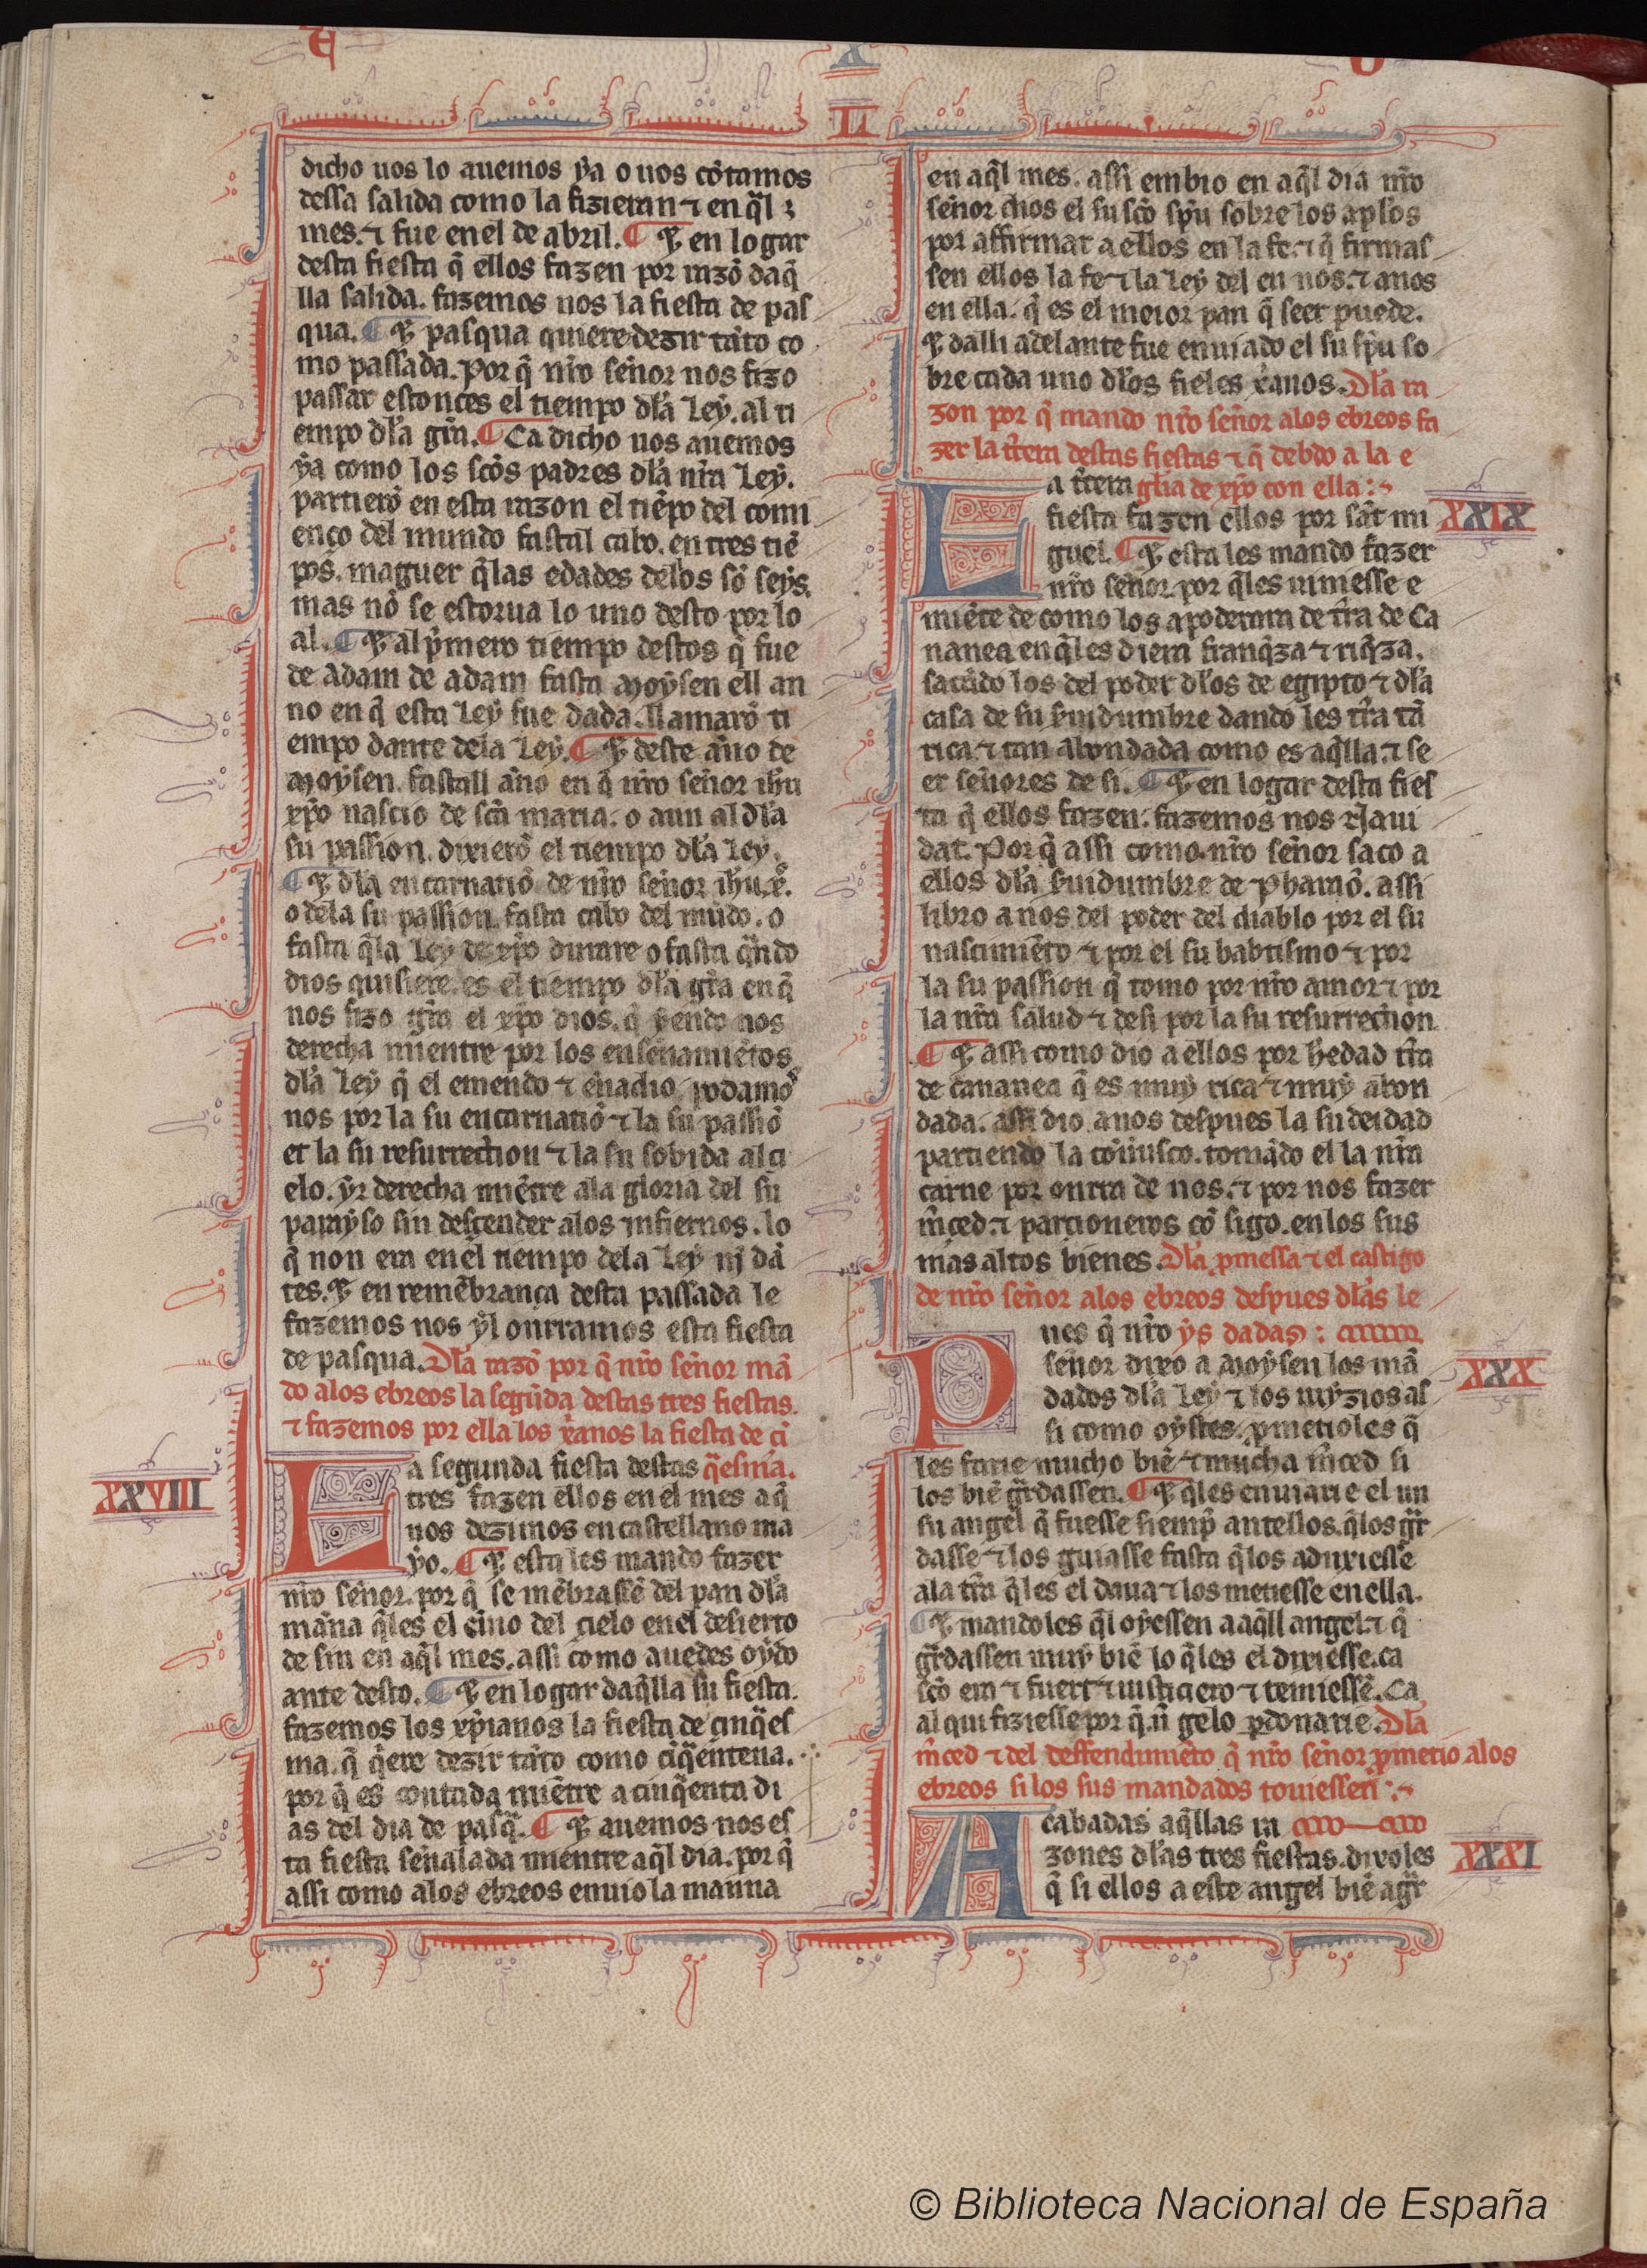 X
II
dicho uos lo auemos ya o uos cõtamos
dessa salida como la fizieran ⁊ en q̃l
mes. ⁊ fue en el de abril. ¶ E en logar
desta fiesta q̃ ellos fazen por razõ daq̃
lla salida. fazemos nos la fiesta de pas
qua. ¶ E pasqua quiere dezir tãto co
mo passada. Por q̃ nr̃o sennor nos fizo
passar estonces el tiempo dl̃a Ley. al ti
empo dl̃a gr̃a. ¶ Ca dicho uos auemos
ya como los sc̃os padres dl̃a nr̃a Ley.
partierõ en esta razon el tiẽpo del comi
enço del mundo fastal cabo. en tres tiẽ
pos. maguer q̃ las edades dellos sõ seys.
mas nõ se estorua lo uno desto por lo
al. ¶ E al p̃mero tiempo destos q̃ fue
de adam de adam fasta Moysen ell an
no en q̃ esta Ley fue dada. llamarõ ti
empo dante dela Ley. ¶ E deste año de
Moysen. fastall año en q̃ nr̃o señor ih̃u
xp̃o nascio de sc̃a maria. o aun al dl̃a
su passion. dixierõ el tiempo dl̃a Ley.
¶ E dl̃a encarnatiõ de nr̃o señor ih̃u x̃.
o dela su passion fasta cabo del mũdo. o
fasta q̃ la Ley de xp̃o durare o fasta qñdo
dios quisiere. es el tiempo dl̃a gr̃a en q̃
nos fizo gr̃a el xp̃o dios. q̃ yendo nos
derecha mientre por los enseñamiẽtos
dl̃a Ley q̃ el emendo ⁊ eñadio podamos
nos por la su encarnatiõ ⁊ la su passiõ
et la su resurrection ⁊ la su sobida al ci
elo. yr derecha miẽtre ala gloria del su
parayso sin descender alos infiernos. lo
q̃ non era en el tiempo dela Ley nj dã
tes. E en remẽbrança desta passada le
fazemos nos yl onrramos esta fiesta
de pasqua. Dl̃a razõ por q̃ nr̃o señor mã
do alos ebreos la segũda destas tres fiestas.
⁊ fazemos por ella los xr̃anos la fiesta de ci
La segunda fiesta destas q̃esma.
XXVIII
tres fazen ellos en el mes a q̃
nos dezimos en castellano ma
yo. ¶ E esta les mando fazer
nr̃o señor. por q̃ se mẽbrassẽ del pan dl̃a
mãna q̃ les el eñuio del cielo en el desierto
de sin en aq̃l mes. assi como auedes oydo
ante desto. ¶ E en logar daq̃lla su fiesta.
fazemos los xp̃ianos la fiesta de cinq̃es
ma. q̃ q̃ere dezir tãto como cĩq̃entena.
por q̃ es contada miẽtre a cinq̃enta di
as del dia de pasq̃. ¶ E auemos nos es
ta fiesta señalada mientre aq̃l dia. por q̃
assi como alos ebreos enuio la manna
en aq̃l mes. assi embio en aq̃l dia nr̃o
señor dios el su sc̃o sp̃u sobre los ap̃los
por affirmar a ellos en la fe. ⁊ q̃ firmas
sen ellos la fe ⁊ la Ley del en nos. ⁊ a nos
en ella. q̃ es el meior pan q̃ seer puede.
E dalli adelante fue enuiado el su sp̃u so
bre cada uno dl̃os fieles xr̃anos. Dl̃a ra
zon por q̃ mando nr̃o señor alos ebreos fa
zer la tr̃cera destas fiestas ⁊ q̃ debdo a la e
La tr̃cera gl̃ia de xp̃o con ella :~
XXIX
fiesta fazen ellos por sãt mi
guel. ¶ E esta les mando fazer
nr̃o señor. por q̃ les uiniesse e
miẽte de como los apoderara de tr̃ra de Ca
nanea en q̃ les diera franq̃za ⁊ riq̃za.
sacãdo los del poder dl̃os de egipto ⁊ dl̃a
casa de su s̃uidumbre dando les tr̃ra tã
rica ⁊ tan abondada como es aq̃lla. ⁊ se
er señores de si. ¶ E en logar desta fies
ta q̃ ellos fazen. fazemos nos Naui
dat. Por q̃ assi como nr̃o señor saco a
ellos dl̃a s̃uidumbre de Pharaõ. assi
libro a nos del poder del diablo por el su
nascimiẽto ⁊ por el su babtismo ⁊ por
la su passion q̃ tomo por nr̃o amor ⁊ por
la nr̃a salud ⁊ desi por la su resurrection
¶ E assi como dio a ellos por h̃edad tr̃ra
de cananea q̃ es muy rica ⁊ muy abon
dada. assi dio a nos despues la su deidad
partiendo la cõ nusco. tomãdo el la nr̃a
carne por onrra de nos. ⁊ por nos fazer
m̃ced. ⁊ parcioneros cõ sigo. en los sus
mas altos bienes. Dl̃a p̃messa ⁊ el castigo
de nr̃o señor alos ebreos despues dl̃as le
Pues q̃ nr̃o ys dadas :
XXX
señor dixo a Moysen los mã
dados dl̃a Ley ⁊ los iuyzios as
si como oystes. p̃metioles q̃
les farie mucho biẽ ⁊ mucha m̃ced si
los biẽ gr̃dassen. ¶ E q̃ les enuiarie el un
su angel q̃ fuesse siemp̃ antellos. q̃ los gr̃
dasse ⁊ los guiasse fasta q̃ los aduxiesse
ala tr̃ra q̃ les el daua ⁊ los metiesse en ella.
¶ E mandoles q̃l oyessen a aq̃ll angel. ⁊ q̃
gr̃dassen muy biẽ lo q̃ les el dixiesse. ca
sc̃o era ⁊ fuert ⁊ iusticiero ⁊ temiessẽ. Ca
al qui fiziesse por q̃. ñ gelo p̃donarie. Dl̃a
m̃ced ⁊ del deffendimiẽto q̃ nr̃o señor p̃metio alos
ebreos si los sus mandados touiessen :~
Acabadas aq̃llas ra
XXXI
zones dl̃as tres fiestas. dixoles
q̃ si ellos a este angel biẽ agr̃
© Biblioteca Nacional de España